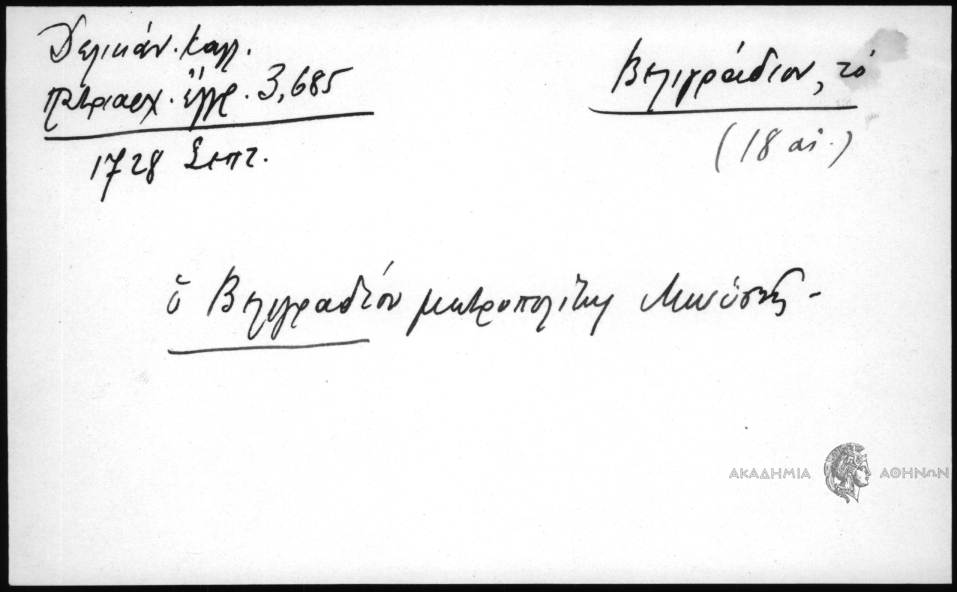 Δελικάν. Καλλ.
πατριαρχ. ἔγγρ. 3,685
1728 Σεπτ.
Βελιγράδιον, τό
(18 αἰ.)
ὁ Βελιγραδίου μητροπολίτης Μωϋσῆς -
ΑΚΑΔΗΜΙΑ ΑΘΗΝΩΝ